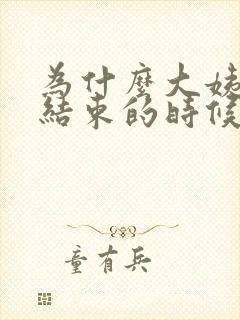 為什麼大姊
結束的時候
童有兵